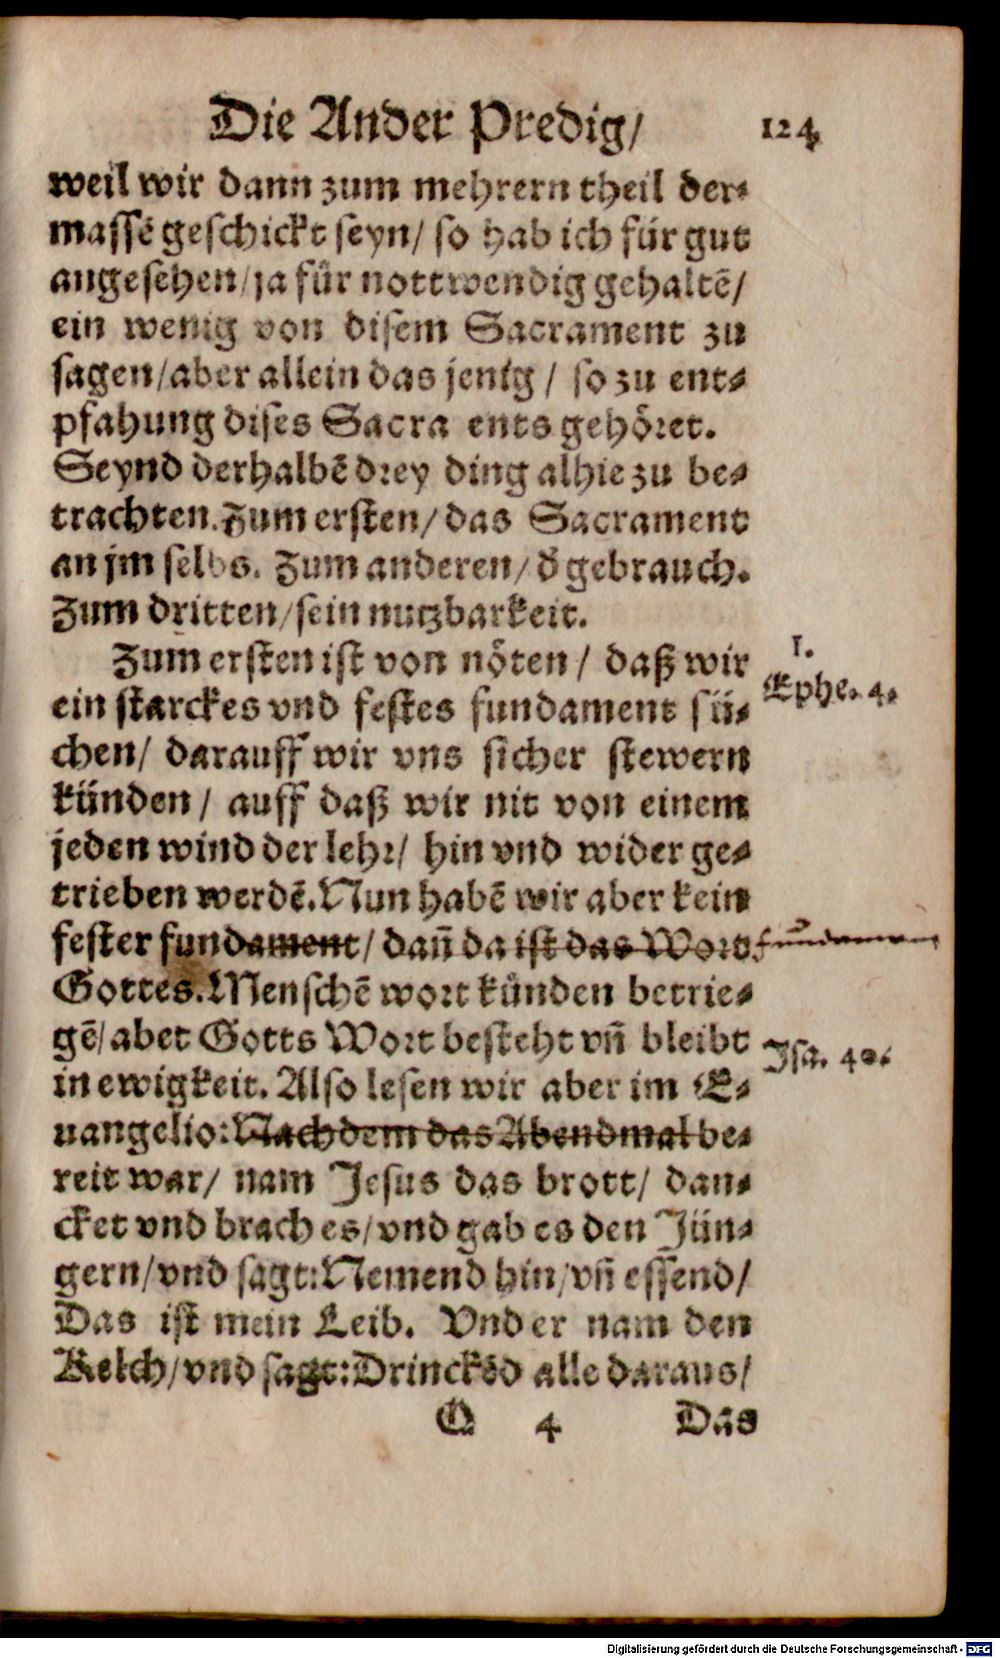 Die Ander Predig/ 124
weil wir dann zum mehrern theil der⸗
massē geschickt seyn/ so hab ich für gut
angesehen/ ja für nottwendig gehaltē/
ein wenig von disem Sacrament zu
sagen/ aber allein das jenig/ so zu ent⸗
pfahung dises Sacra ents gehöret.
Seynd derhalbē drey ding alhie zu be⸗
trachten. Zum ersten/ das Sacrament
an jm selbs. Zum anderen/ d̄ gebrauch.
Zum dritten/ sein nutzbarkeit.
Zum ersten ist von nöten/ daß wir
1.
Ephe. 4.
ein starckes vnd festes fundament sü⸗
chen/ darauff wir vns sicher stewern
künden/ auff daß wir nit von einem
jeden wind der lehr/ hin vnd wider ge⸗
trieben werdē. Nun habē wir aber kein
fester fundament/ dañ da ist das Wort
fundament
Gottes. Menschē wort künden betrie⸗
gē/ abet Gotts Wort besteht vñ bleibt
Jsa. 40.
in ewigkeit. Also lesen wir aber im E⸗
uangelio: Nach dem das Abendmal be⸗
reit war/ nam Jesus das brott/ dan⸗
cket vnd brach es/ vnd gab es den Jün⸗
gern/ vnd sagt: Nemend hin/ vñ essend/
Das ist mein Leib. Vnd er nam den
Kelch/ vnd sagt: Drinckēd alle daraus/
Q 4 Das
Digitalisierung gefördert durch die Deutsche Forschungsgemeinschaft - DFG